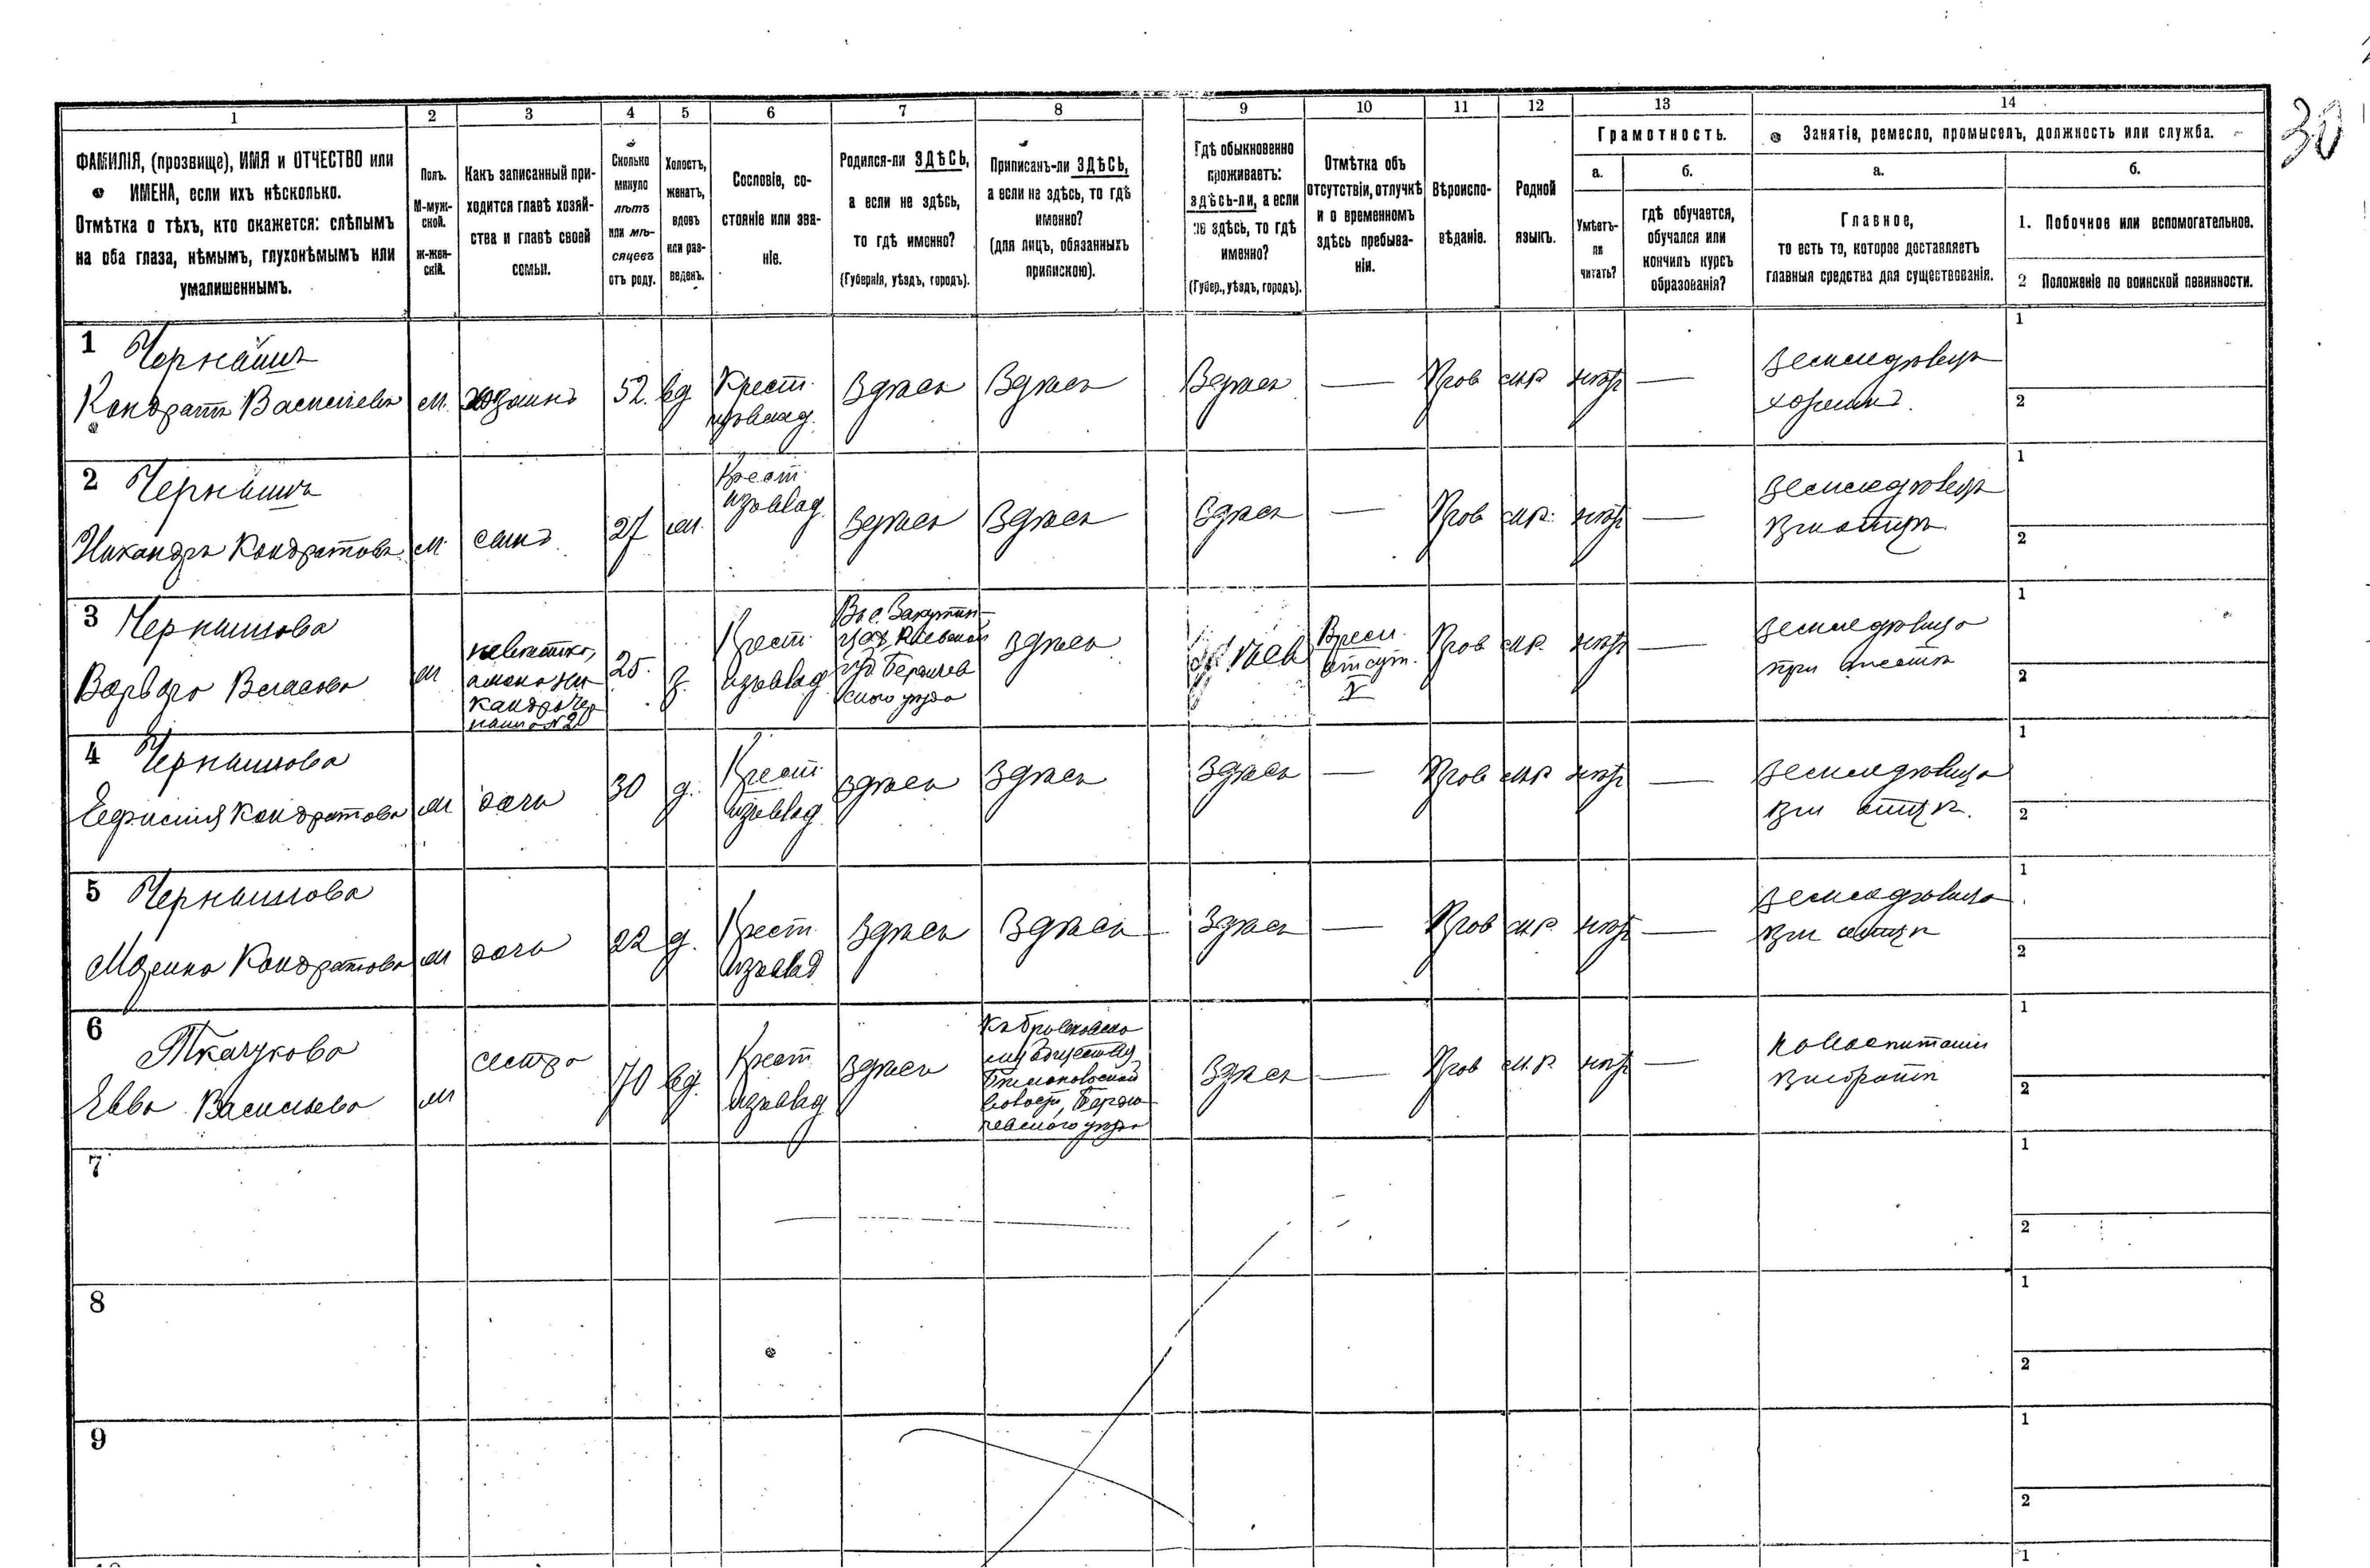 30
1 2 3 4 5 6 7 8 9 10 11 12 13 14
ФАМИЛІЯ, (прозвище), ИМЯ и ОТЧЕСТВО или
ИМЕНА, если ихъ нѣсколько.
Отмѣтка о тѣхъ, кто окажется: слѣпымъ
на оба глаза, нѣмымъ, глухонѣмымъ или
умалишеннымъ.
Полъ.
М-муж-
ской.
Ж-жен-
скій.
Какъ записанный при-
ходится главѣ хозяй-
ства и главѣ своей
семьи.
Сколько
минуло
лѣтъ
или мѣ-
сяцевъ
отъ роду.
Холостъ,
женатъ,
вдовъ
или раз-
веденъ.
Сословіе, со-
стояніе или зва-
ніе.
Родился-ли ЗДѢСЬ,
а если не здѣсь,
то гдѣ именно?
(Губернія, уѣздъ, городъ).
Приписанъ-ли ЗДѢСЬ,
а если не здѣсь, то гдѣ
именно?
(для лицъ, обязанныхъ
припискою).
Гдѣ обыкновенно
проживаетъ:
здѣсь-ли, а если
не здѣсь, то гдѣ
именно?
(Губер., уѣздъ, городъ).
Отмѣтка объ
отсутствіи, отлучкѣ
и о временномъ
здѣсь пребыва-
ніи.
Вѣроиспо-
вѣданіе.
Родной
языкъ.
Грамотность.
а.
Умѣетъ-
ли
читать?
б.
гдѣ обучается,
обучался или
кончилъ курсъ
образованія?
Занятіе, ремесло, промыселъ, должность или служба.
а.
Главное,
то есть то, которое доставляетъ
главныя средства для существованія.
б.
1. Побочное или вспомогательное.
2 Положеніе по воинской повинности.
1 Чернышъ
Кондратъ Васильевъ м. хозяинъ 52. вд Крест. изъ влад. Здѣсь Здѣсь Здѣсь — Прав м.р. нѣтъ — Земледѣлецъ
хозяинъ
1
2
2 Чернышъ
Никандръ Кондратовъ м. сынъ 27 ж. Крест. изъ влад. Здѣсь Здѣсь Здѣсь — Прав м.р. нѣтъ — Земледѣлецъ
при отцѣ
1
2
3 Чернышова
Варвара Власова ж
невѣстка,
жена Ни
кандра Чер
ныша №2
25. з. Крест. изъ влад.
Въ с.
Кіевской
губ Бердичев
скаго уѣзда
Здѣсь Здѣсь
Врем.
отсут.
Прав м.р. нѣтъ — Земледѣлица
1
2
4 Чернышова
Ефимія Кондратова ж дочь 30 д. Крест. изъ влад. Здѣсь Здѣсь Здѣсь — Прав м.р нѣтъ — Земледѣлица
при отцѣ.
1
2
5 Чернышова
Марина Кондратова ж дочь 22 д. Крест. изъ влад Здѣсь Здѣсь Здѣсь — Прав м.р. нѣтъ — Земледѣлица
при отцѣ
1
2
6 Ткачукова
Евва Васильева ж сестра 70 вд. Крест изъ влад Здѣсь
му обществу
волости, Берди
чевского уѣзда
Здѣсь — Прав м.р. нѣтъ —
при братѣ
1
2
7
1
2
8
1
2
9
1
2
1